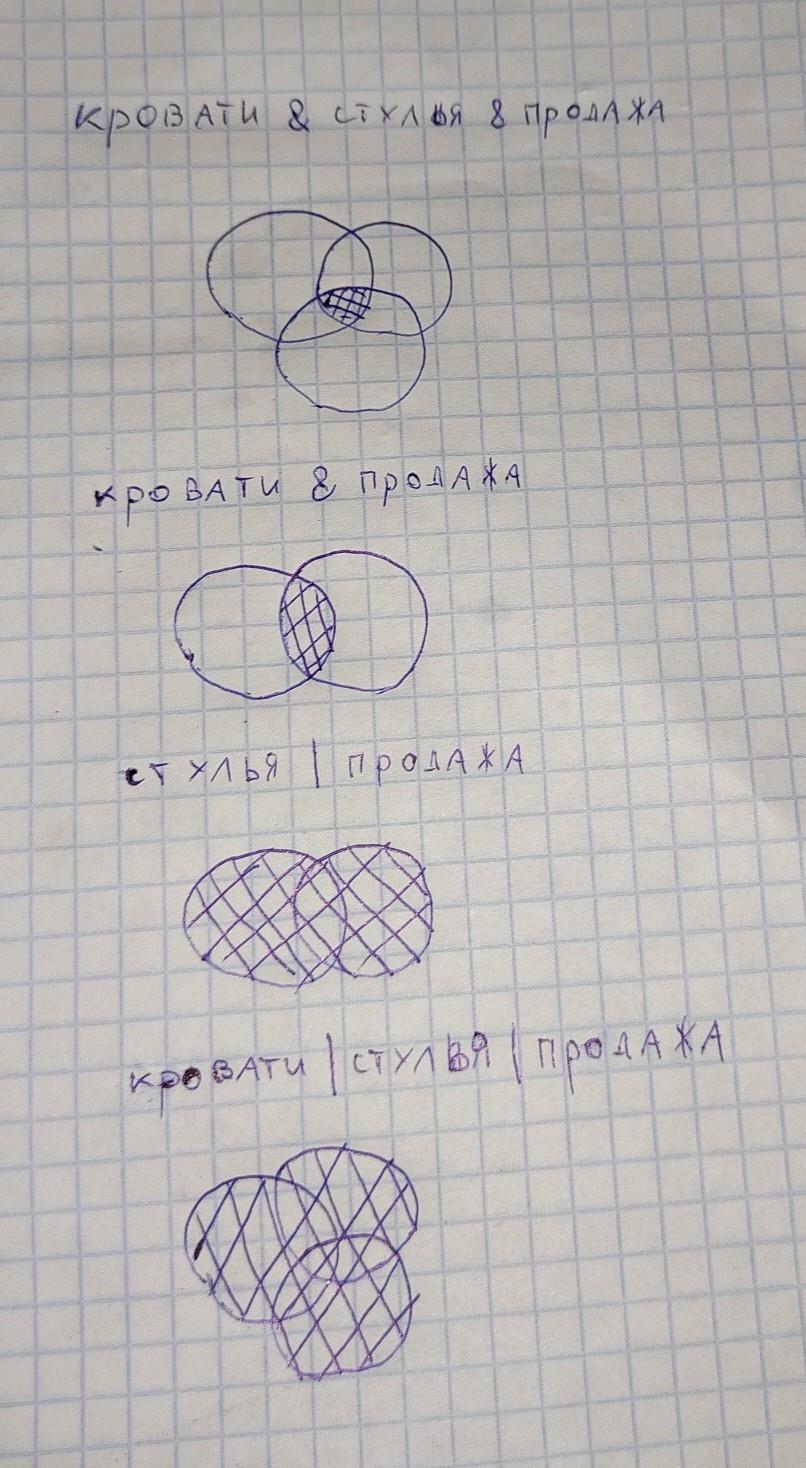 КРОВАТИ & СТУЛЬЯ & ПРОДАЖА
КРОВАТИ & ПРОДАЖА
СТУЛЬЯ | ПРОДАЖА
КРОВАТИ | СТУЛЬЯ | ПРОДАЖА